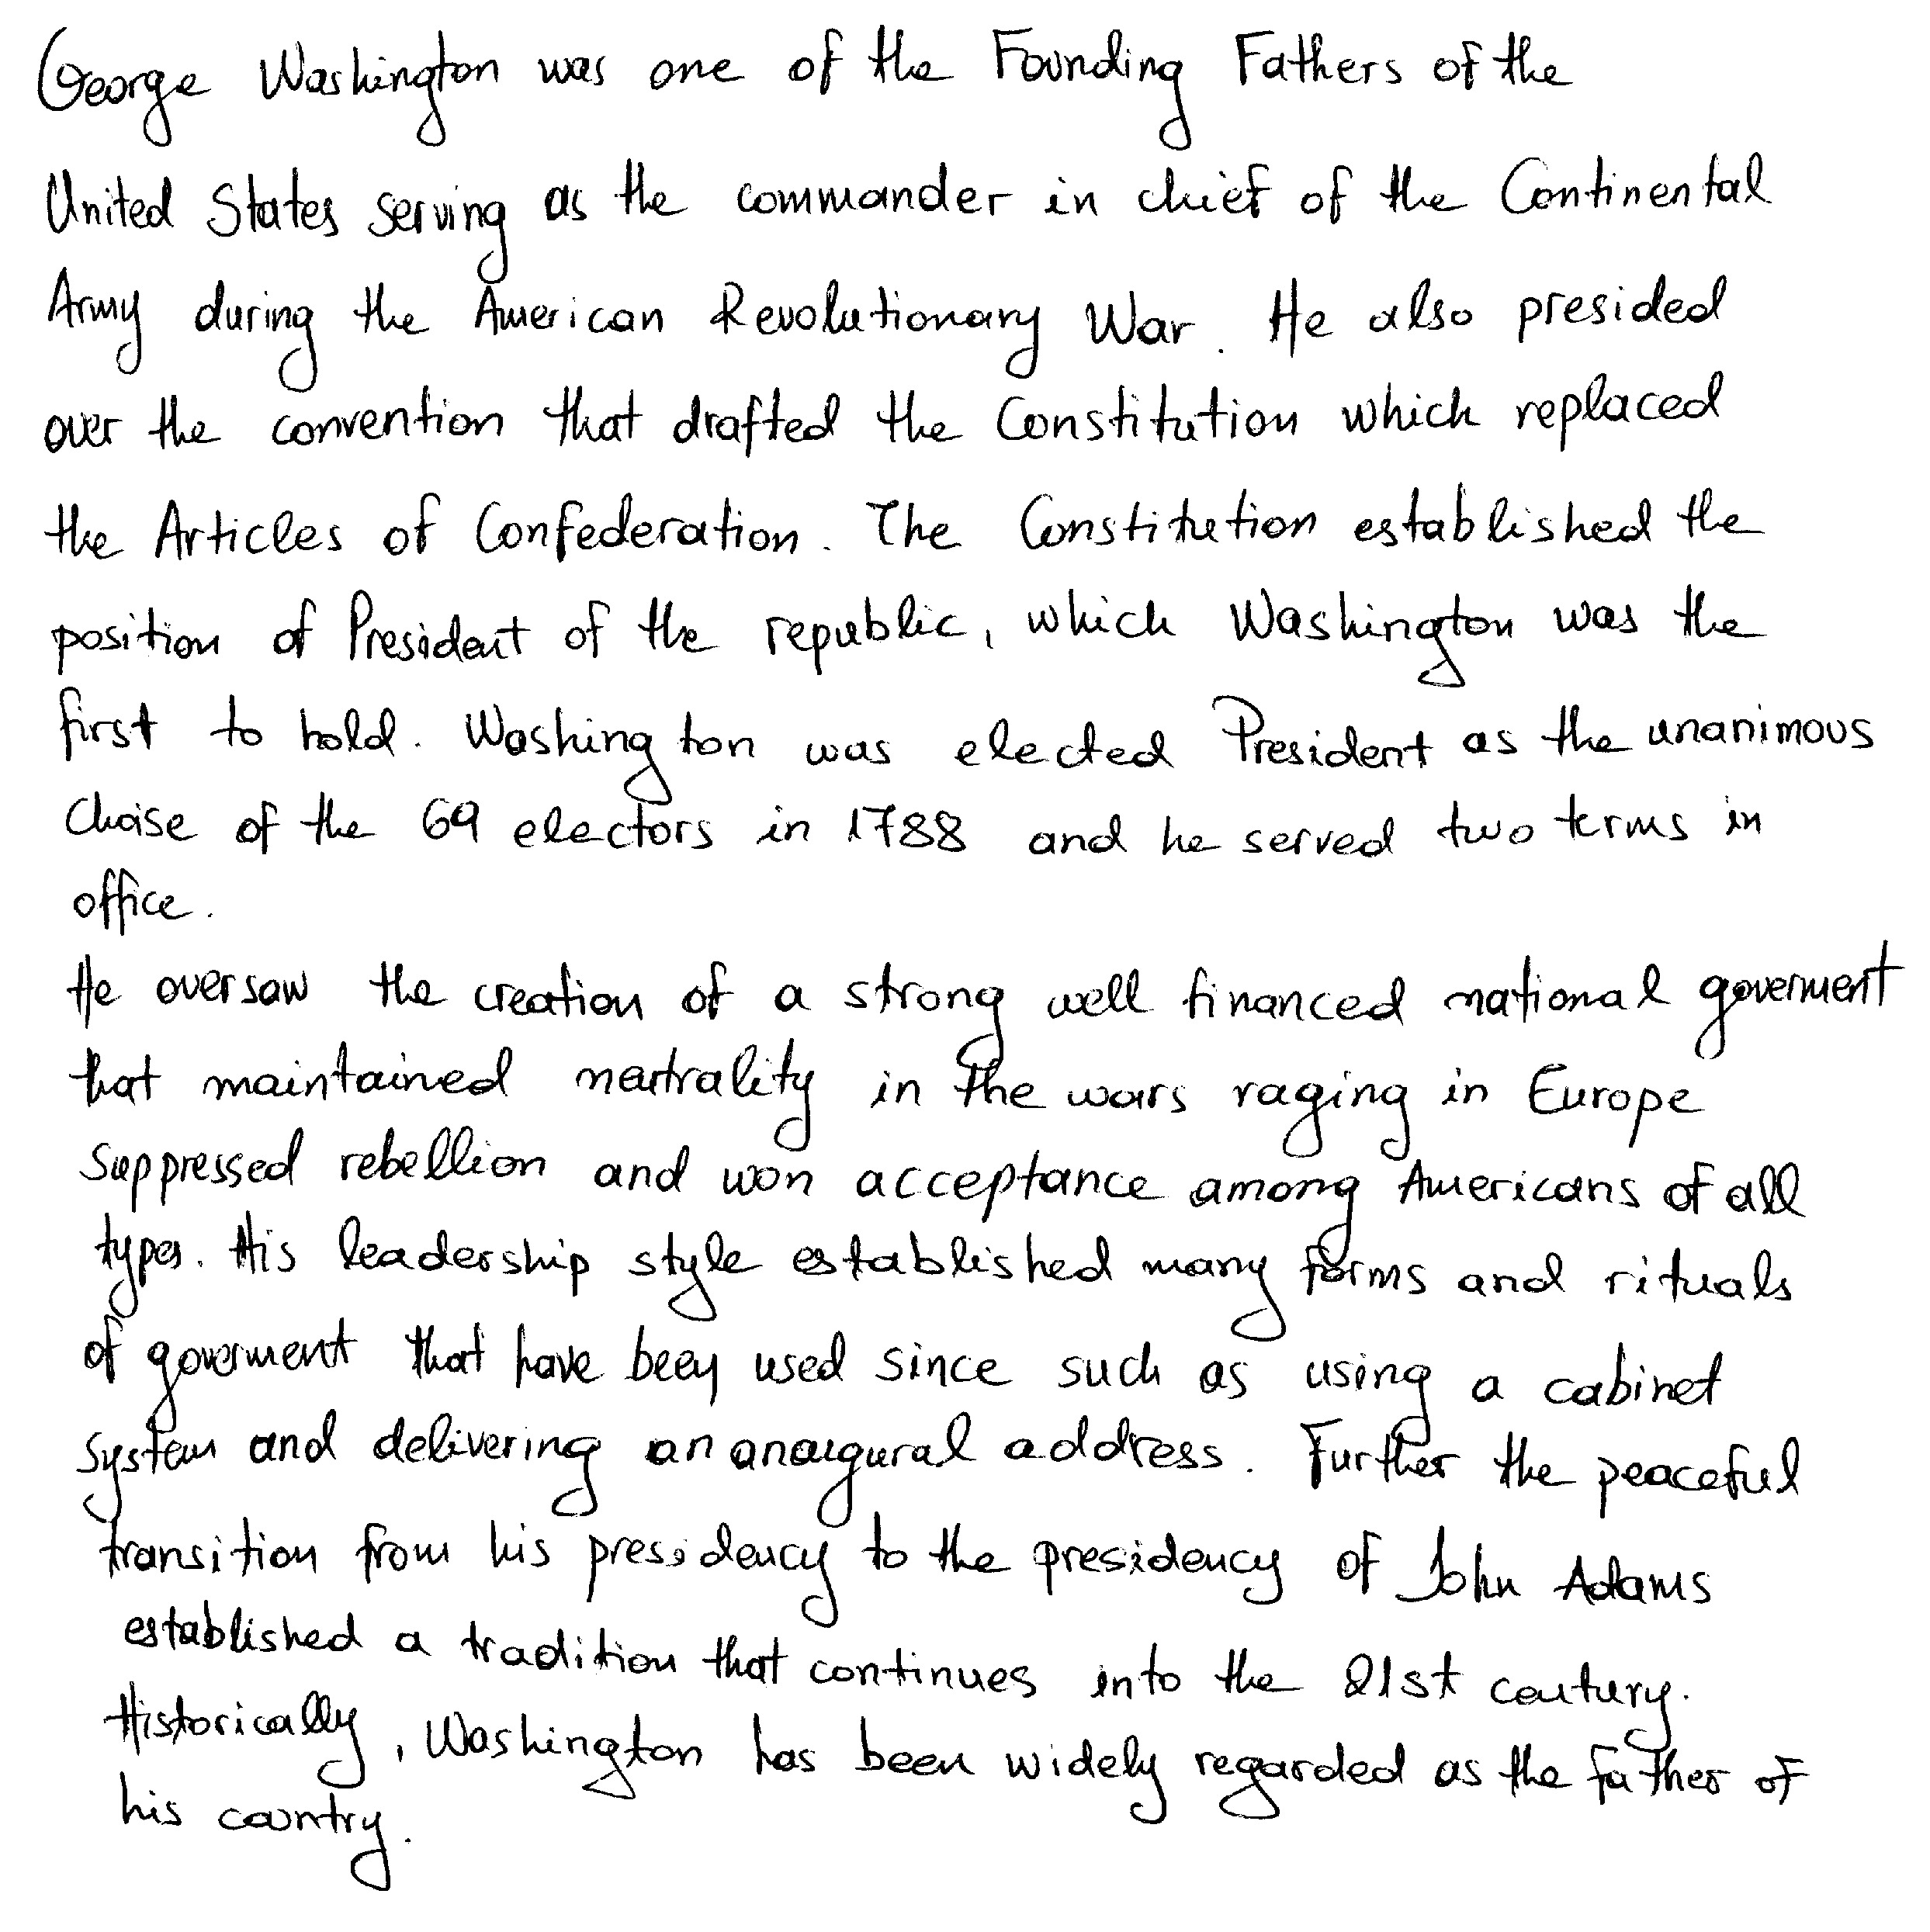 George Washington was one of the Founding Fathers of the
United States serving as the commander in chief of the Continental
Army during the American Revolutionary War. He also presided
over the convention that drafted the Constitution which replaced
the Articles of Confederation. The Constitution established the
position of President of the republic, which Washington was the
first to hold. Washington was elected President as the unanimous
Choise of the 69 electors in 1788 and he served two terms in
office.
He oversaw the creation of a strong well financed national goverment
that maintained neutrality in the wars raging in Europe
suppressed rebellion and won acceptance among Americans of all
types. His leadership style established many forms and rituals
of goverment that have been used since such as using a cabinet
system and delivering an anaugural address. Further the peaceful
transition from his presidency to the presidency of John Adams
established a tradition that continues into the 21st century.
Historically, Washington has been widely regarded as the father of
his country.